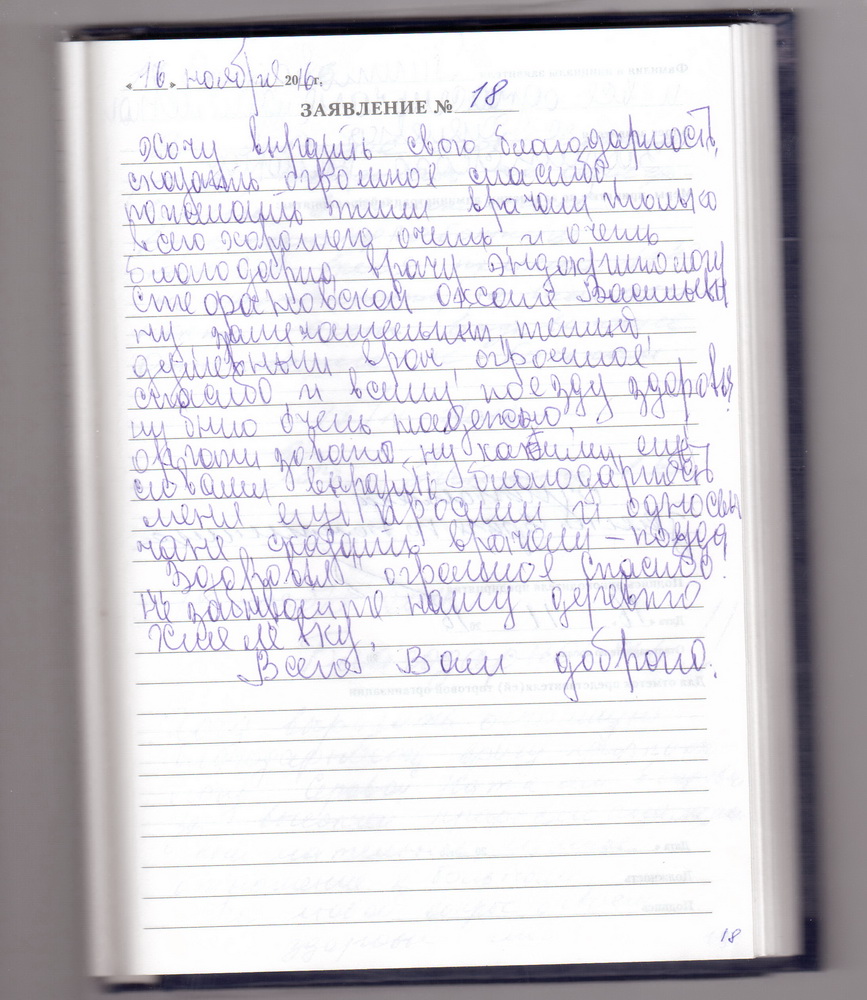 « 16 » ноября 2016г.
ЗАЯВЛЕНИЕ № 18
Хочу выразить свою благодарность,
сказать огромное спасибо
пожелать этим врачам только
всего хорошего очень и очень
благодарна врачу эндокринологу
Стефановской Оксане Васильев
ну замечательный,
душевный врач, огромное
спасибо и всему поезду здоровья
ну было очень надежно
организовано ни какими
словами выразить благодарность
меня и односель
чане сказать врачам – поезда
Здоровья огромное спасибо!
Не забывайте нашу деревню
Хмелёвку.
Всего Вам доброго.
18